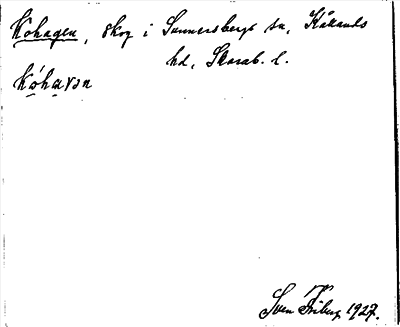 Kohagen, skog i Sunnersbergs sn, Kållands
hd, Skarab. l.
kóhavan
Sven Friberg 1927.